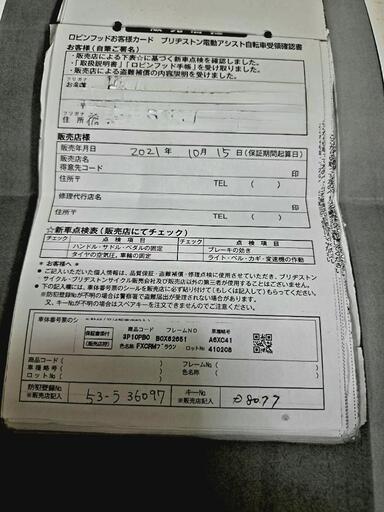 ロビンフッドお客様カード ブリヂストン電動アシスト自転車受領確認書
お客様（自筆ご署名）
・販売店による下表☆に基づく新車点検を確認しました。
・「取扱説明書」「ロビンフッド手帳」を受け取りました。
・販売店による盗難補償の内容説明を受けました。
フリガナ
お名前
フリガナ
住 所
販売店様
販売年月日 2021年 10月 15日（保証期間起算日）
販売店名
得意先コード 印
住所〒 TEL （ ）
修理代行店名 印
住所〒 TEL （ ）
☆新車点検表（販売店にてチェック）
チェック 点 検 項 目 チェック 点 検 項 目
ハンドル・サドル・ペダルの固定 ブレーキの効き
タイヤの空気圧，車輪の固定 ライト・ベル・カギ・変速機の作動
＜お客様へ＞
●ご記入いただいた個人情報は、品質保証・盗難補償・修理点検に使用させていただき、ブリヂストンサイクル・ブリヂストンサイクル販売会社及び販売店以外の第三者が使用することはございません。
●下の記入欄には、車体番号票のシールを販売店に必ず貼り付けて（もしくは記入して）もらってください。
※防犯登録№が不明の場合は警察署で盗難届が受理されない場合がございますのでご注意ください。
又、キー№が不明の場合はスペアキーをご注文できませんのでご注意ください。
車体番号票のシ
保証書添付 (販売店控)
商品コード フレームNO 車種略号
3P10PB0 B0X62651 A6XC41
色名称 FXCRMブラウン ロット 410208
商品コード（ ） フレーム№（ ）
車種略号（ ） 色名称（ ）
ロット№（ ）
防犯登録№ ※販売店記入 53-5 36097 キー№ ※販売店記入 D8077